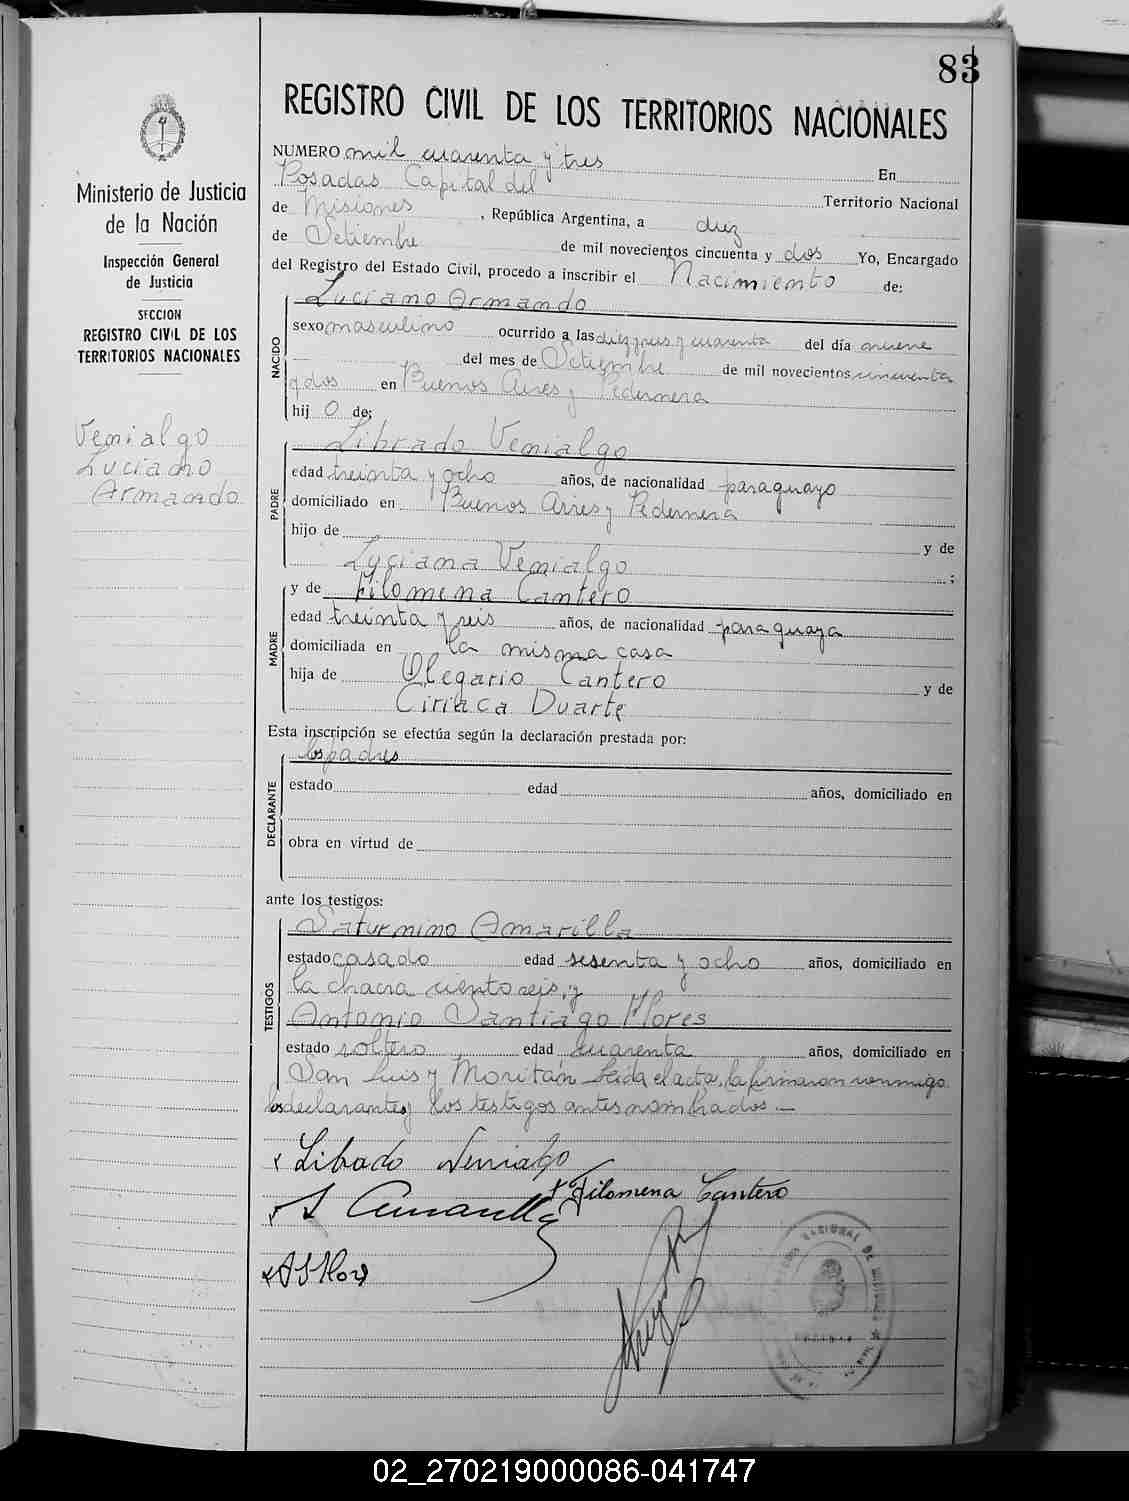 83
REGISTRO CIVIL DE LOS TERRITORIOS NACIONALES
Ministerio de Justicia
de la Nación
Inspección General
de Justicia
SECCION
REGISTRO CIVIL DE LOS
TERRITORIOS NACIONALES
Venialgo
Luciano
Armando
NUMERO mil cuarenta y tres En
Posadas Capital del Territorio Nacional
de Misiones, República Argentina, a diez
de Setiembre de mil novecientos cincuenta y dos Yo, Encargado
del Registro del Estado Civil, procedo a inscribir el Nacimiento de:
NACIDO
Luciano Armando
sexo masculino ocurrido a las y cuarenta del día nueve
del mes de Setiembre de mil novecientos cincuenta
y dos en Buenos Aires y Pedernera
hij o de;
PADRE
Librado Venialgo
edad treinta y ocho años, de nacionalidad paraguayo
domiciliado en Buenos Aires y Pedernera
hijo de y de
Luciana Venialgo ;
MADRE
y de Filomena Cantero
edad treinta y seis años, de nacionalidad paraguaya
domiciliada en la misma casa
hija de Olegario Cantero y de
Ciriaca Duarte
Esta inscripción se efectúa según la declaración prestada por:
DECLARANTE
los padres
estado edad años, domiciliado en
obra en virtud de
ante los testigos:
TESTIGOS
Saturnino Amarilla
estado casado edad sesenta y ocho años, domiciliado en
la chacra ciento seis, y
Antonio Santiago Flores
estado soltero edad cuarenta años, domiciliado en
San Luis y Moritán Leida el acta, la firmaron conmigo
los declarantes y los testigos antes nombrados.—
Librado Venialgo
Filomena Cantero
S Amarilla
A S Flores
02_270219000086-041747